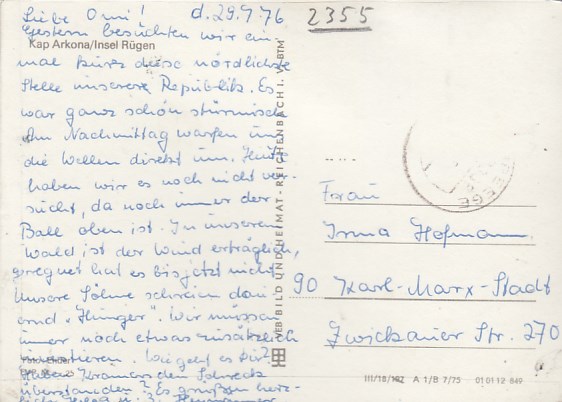 Liebe Omi! d. 29.7.76
Gestern besuchten wir ein-
Kap Arkona/Insel Rügen
mal kurz diese nördlichste
Stelle unserer Republik. Es
war ganz schön stürmisch
Am Nachmittag warfen uns
die Wellen direkt um. Heute
haben wir es noch nicht ver-
sucht, da noch immer der
Ball oben ist. In unserem
Wald ist der Wind erträglich,
geregnet hat es bis jetzt nicht
Unsere Söhne schreien dau
ernd "Hunger". Wir müssen
immer noch etwas zusätzlich
Wie geht es Dir?
Haben den Schreck
überstanden? Es grüßen herz-
2355
VEB BILD UND HEIMAT · REICHENBACH I. V. BTM
Frau
Irma Hofmann
90 Karl-Marx-Stadt
Zwickauer Str. 270
III/18/197 A 1/B 7/75 01 01 12 849